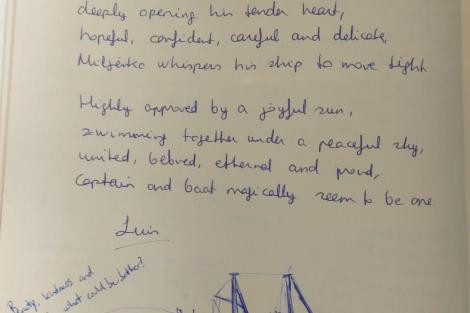 deeply opening his tender heart,
hopeful, confident, careful and delicate,
whispers his ship to move tight
Highly approved by a joyful sun,
swimming together under a peaceful sky,
united, beloved, ethernal and proud,
Captain and boat magically seem to be one
Luis
Beauty, kindness and
what could be better?